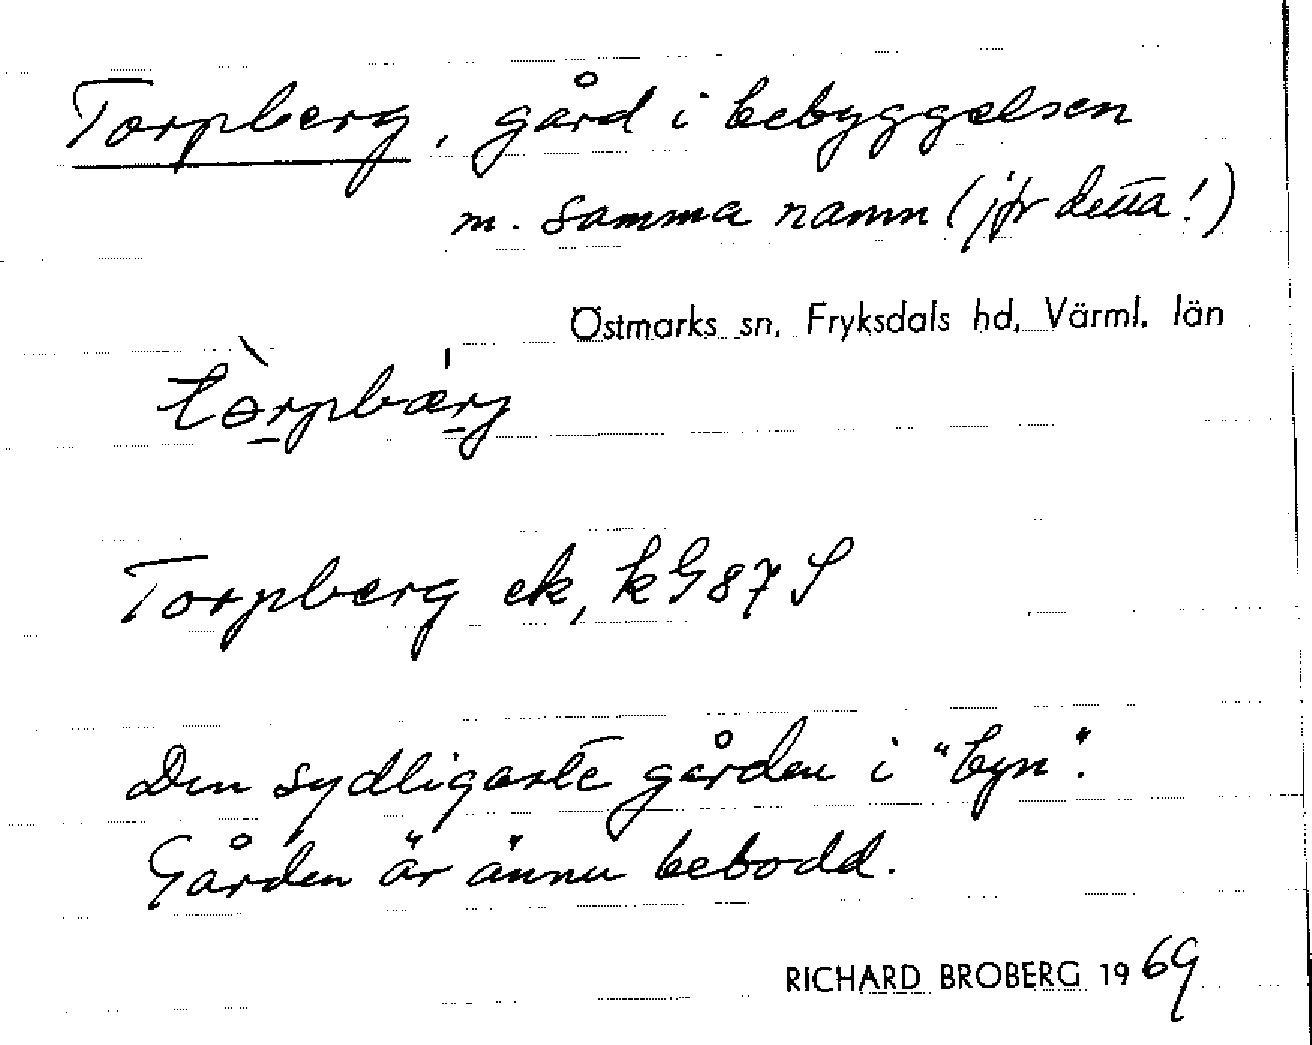 Torpberg, gård i bebyggelsen
m. samma namn (jfr detta!)
Östmarks sn, Fryksdals hd, Värml. län
tɵ̀rpbæ̀rj
Torpberg ek, kG87S
Den sydligaste gården i "byn".
Gården är ännu bebodd.
RICHARD BROBERG 1969